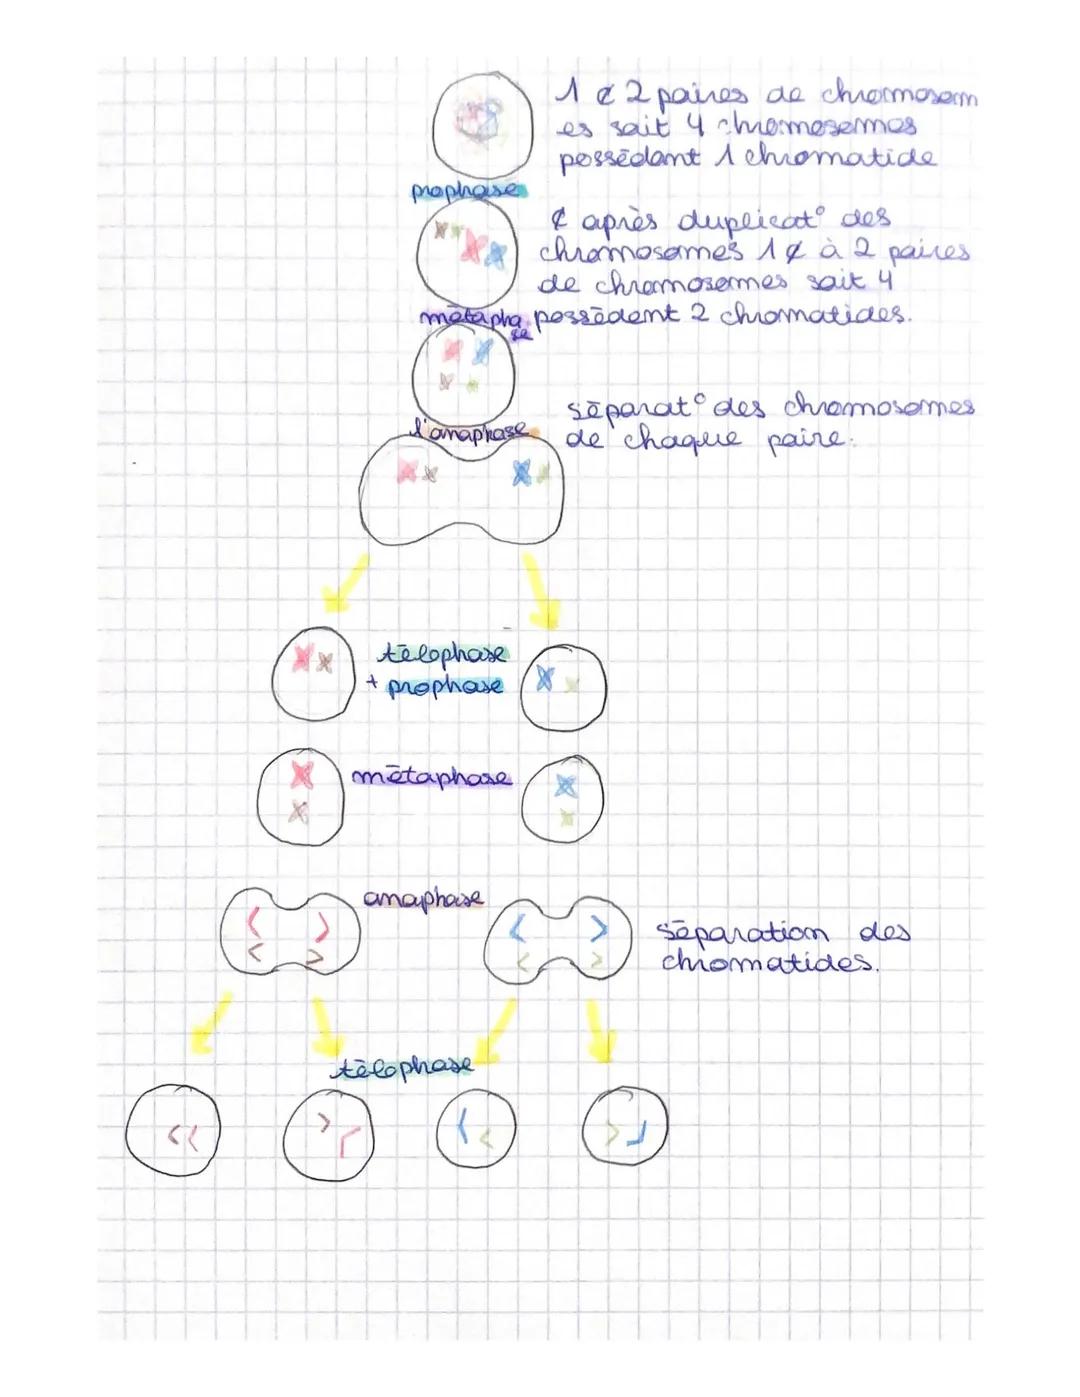 1 ¢ 2 paires de chromosom
es soit 4 chromosomes
possédant 1 chromatide
prophase
¢ après duplicat° des
chromosomes 1 ¢ à 2 paires
de chromosomes soit 4
possèdent 2 chromatides.
métapha
se
séparat° des chromosomes
de chaque paire.
l'anaphase
télophase
+ prophase
métaphase
anaphase
séparation des
chromatides.
télophase